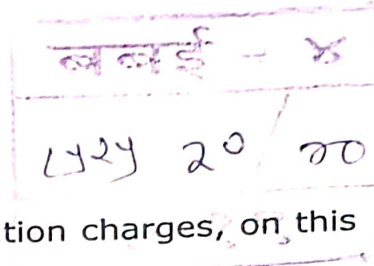 बबई - ४
८५२५ २०
tion charges, on this